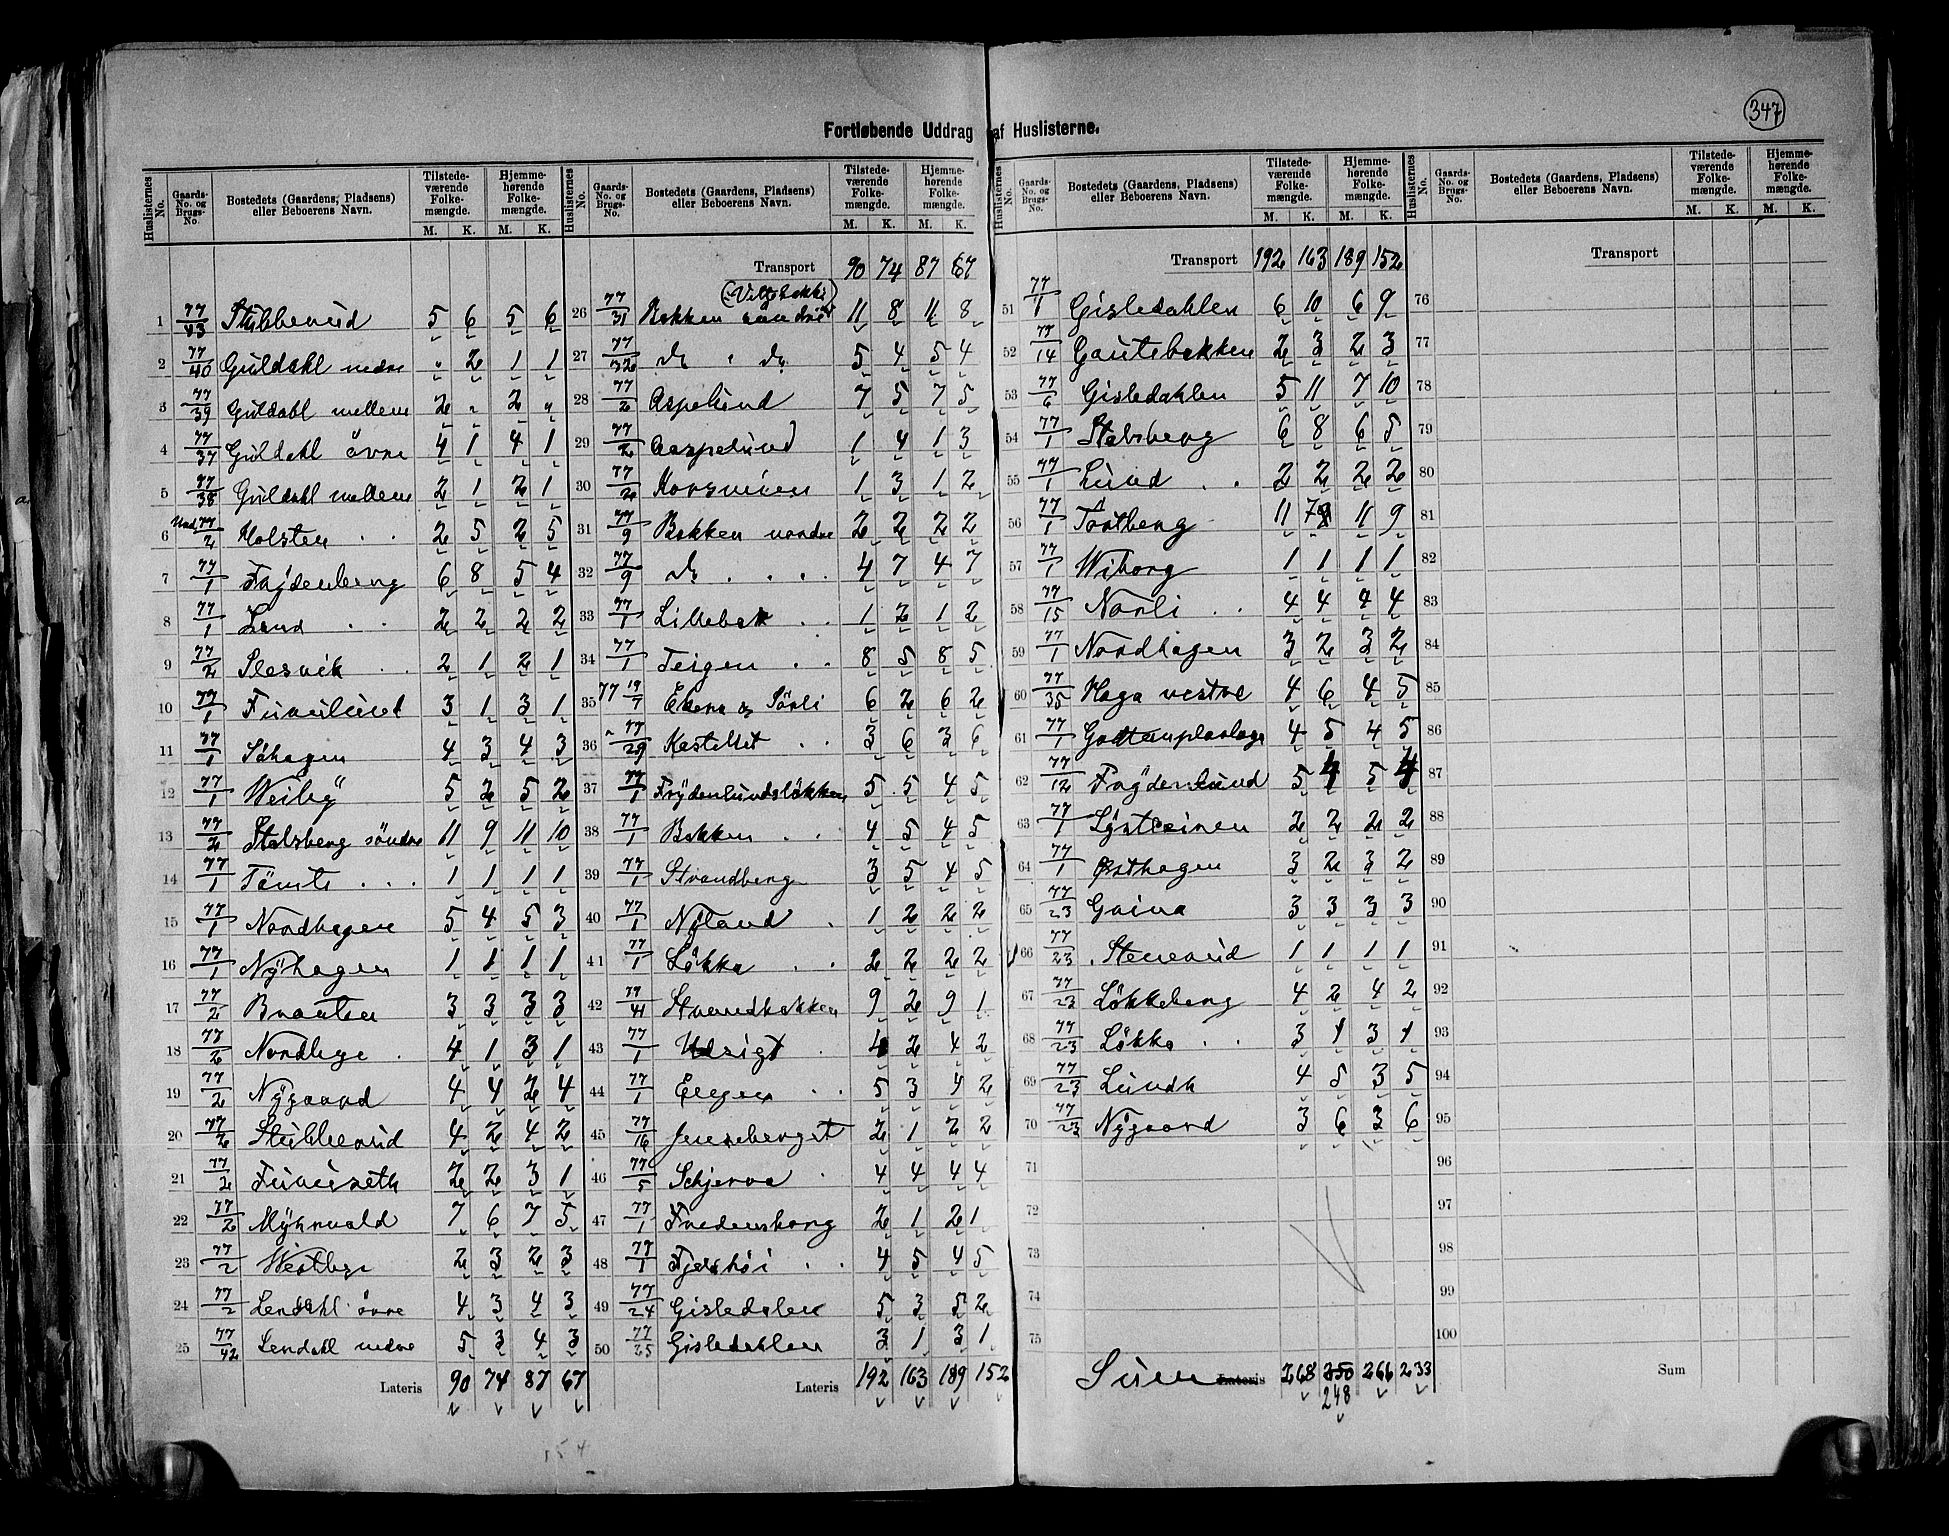 347
Fortløbende Uddrag af Huslisterne.
Huslisternes No. | Gaards-No. og Brugs-No. | Bostedets (Gaardens, Pladsens) eller Beboerens Navn. | Tilstede-værende Folke-mængde. M. K. | Hjemme-hørende Folke-mængde. M. K.
1 77/43 Stubberud 5 6 5 6
2 77/40 Guldahl nedre " 2 1 1
3 77/39 Guldahl mellem 2 " 2 "
4 77/37 Guldahl övre 4 1 4 1
5 77/38 Guldahl mellem 2 1 2 1
6 Und. 77/2 Holsten 2 5 2 5
7 77/1 Frÿdenberg 6 8 5 4
8 77/1 Lund 2 2 2 2
9 77/2 Slesvik 2 1 2 1
10 77/1 Furulund 3 1 3 1
11 77/1 Söhagen 4 3 4 3
12 77/1 Weibÿ 5 2 5 2
13 77/2 Stalsberg söndre 11 9 11 10
14 77/1 Tömte 1 1 1 1
15 77/1 Nordhagen 5 4 5 3
16 77/1 Nÿhagen 1 1 1 1
17 77/2 Braaten 3 3 3 3
18 77/2 Nordhage 4 1 3 1
19 77/2 Nÿgaard 4 4 2 4
20 77/2 Stubberud 4 2 4 2
21 77/2 Furuseth 2 2 3 1
22 77/2 Mÿhrvold 7 6 7 5
23 77/2 Westbye 2 3 2 3
24 77/2 Lendahl övre 4 3 4 3
25 77/42 Lendahl nedre 5 3 4 3
Lateris 90 74 87 67
Huslisternes No. | Gaards-No. og Brugs-No. | Bostedets (Gaardens, Pladsens) eller Beboerens Navn. | Tilstede-værende Folke-mængde. M. K. | Hjemme-hørende Folke-mængde. M. K.
Transport 90 74 87 67
26 77/31 Bakken söndre 11 8 11 8
27 77/32 do " do 5 4 5 4
28 77/2 Aspelund 7 5 7 5
29 77/2 Aaspelund 1 4 1 3
30 77/2 Korsveien 1 3 1 2
31 77/9 Bakken nordre 2 2 2 2
32 77/9 do 4 7 4 7
33 77/1 Lillebæk 1 2 1 2
34 77/1 Teigen 8 5 8 5
35 77 19/7 Ekern og Sörli 6 2 6 2
36 77/29 Kastellet 3 6 3 6
37 77/1 Frÿdenlundslökken 5 5 4 5
38 77/1 Bakken 4 5 4 5
39 77/1 Strandberg 3 5 4 5
40 77/1 Nÿland 1 2 2 2
41 77/1 Lökka 2 2 2 2
42 77/41 Strandbakken 9 2 9 1
43 77/1 Udsigt 4 2 4 2
44 77/1 Engen 5 3 4 2
45 77/16 Jenseberget 2 1 2 2
46 77/5 Schjerva 4 4 4 4
47 77/1 Fredensborg 2 1 2 1
48 77/1 Fjeldhöi 4 5 4 5
49 77/24 Gisledalen 5 3 5 2
50 77/25 Gisledahlen 3 1 3 1
Lateris 192 163 189 152
Huslisternes No. | Gaards-No. og Brugs-No. | Bostedets (Gaardens, Pladsens) eller Beboerens Navn. | Tilstede-værende Folke-mængde. M. K. | Hjemme-hørende Folke-mængde. M. K.
Transport 192 163 189 152
51 77/1 Gisledahlen 6 10 6 9
52 77/14 Gautebakken 2 3 2 3
53 77/6 Gisledahlen 5 11 7 10
54 77/1 Stalsberg 6 8 6 5
55 77/1 Lund 2 2 2 2
56 77/1 Tortberg 11 7 11 9
57 77/1 Wiborg 1 1 1 1
58 77/15 Norli 4 4 4 4
59 77/1 Nordhagen 3 2 3 2
60 77/35 Haga vestre 4 6 4 5
61 77/1 Godtemplarloge 4 5 4 5
62 77/12 Frÿdenlund 5 4 5 4
63 77/1 Lÿsteinen 2 2 2 2
64 77/1 Østhagen 3 2 3 2
65 77/23 Graina 3 3 3 3
66 77/23 Stenerud 1 1 1 1
67 77/23 Lökkeberg 4 2 4 2
68 77/23 Lökka 3 1 3 1
69 77/23 Lundh 4 5 3 5
70 77/23 Nÿgaard 3 6 3 6
71
72
73
74
75
Sum Lateris 268 250 266 233
248
Huslisternes No. | Gaards-No. og Brugs-No. | Bostedets (Gaardens, Pladsens) eller Beboerens Navn. | Tilstede-værende Folke-mængde. M. K. | Hjemme-hørende Folke-mængde. M. K.
Transport
76
77
78
79
80
81
82
83
84
85
86
87
88
89
90
91
92
93
94
95
96
97
98
99
100
Sum